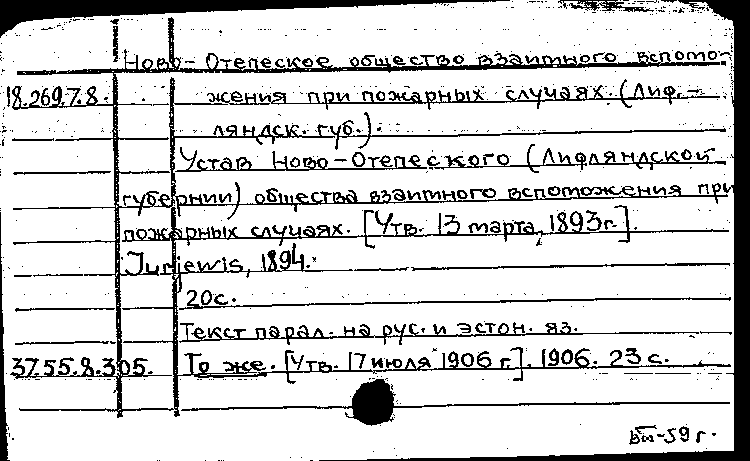 Ново-Отепеское общество взаимного вспомо-
18.269.7.8. жения при пожарных случаях. (Лиф.-
ляндск. губ.).
Устав Ново-Отепеского (Лифляндской
губернии) общества взаимного вспоможения при
пожарных случаях. [Утв. 13 марта, 1893г.].
Jurjewis, 1894.
20с.
Текст парал. на рус. и эстон. яз.
37.55.8.305. То же. [Утв. 17 июля 1906 г.]. 1906. 23 с.